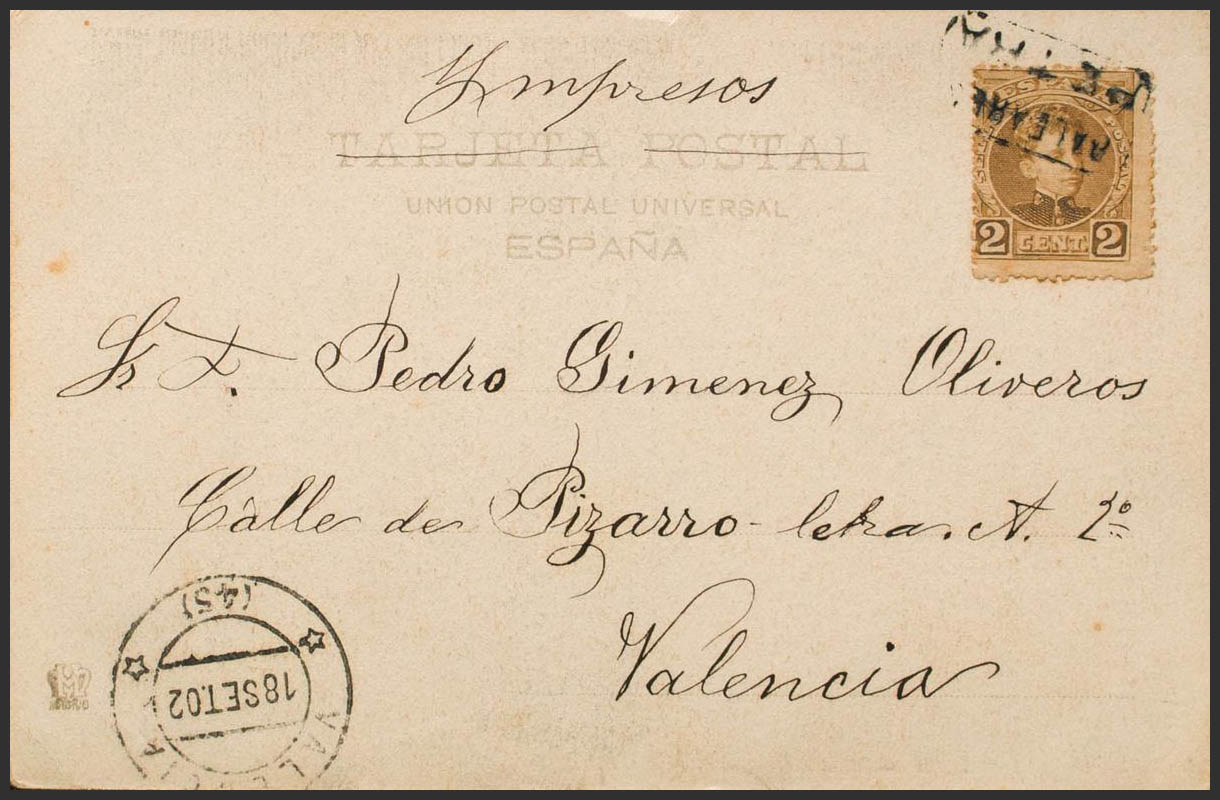 Ympresos
TARJETA POSTAL
UNION POSTAL UNIVERSAL
ESPAÑA
BALEARE
2 CENT. 2
Sr D. Pedro Gimenez Oliveros
Calle de Pizarro - letra. A. 2º
Valencia
(4S)
18 SET. 02
VALENCIA